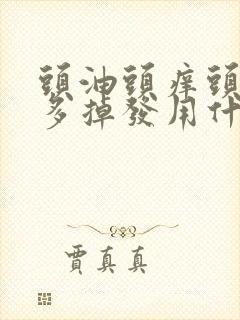 頭油頭痒頭
多掉發用什
賈真真